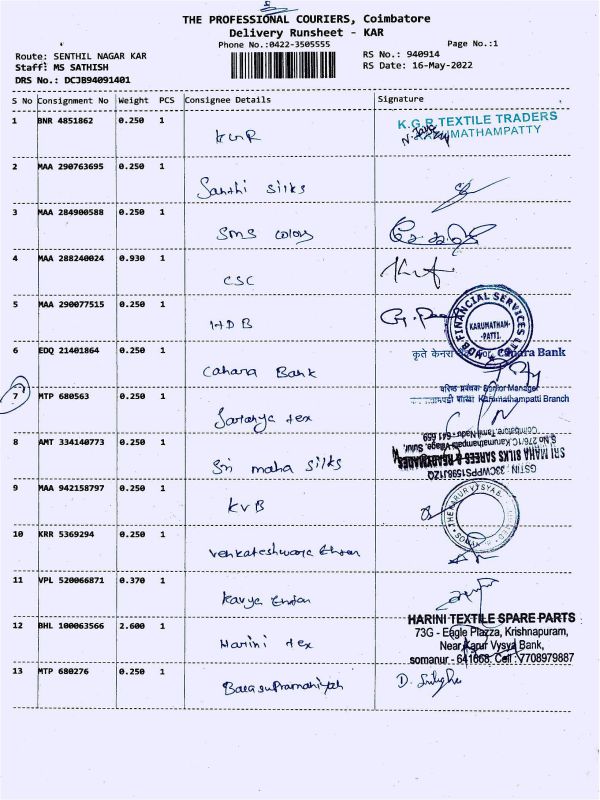 THE PROFESSIONAL COURIERS, Coimbatore
Delivery Runsheet - KAR
Phone No.:0422-3505555
Page No.:1
Route: SENTHIL NAGAR KAR
RS No.: 940914
Staff: MS SATHISH
RS Date: 16-May-2022
DRS No.: DCJB94091401
S No Consignment No Weight PCS Consignee Details Signature
1 BNR 4851862 0.250 1 KGR
K.G.R TEXTILE TRADERS
KARUMATHAMPATTY
2 MAA 290763695 0.250 1 Santhi silks
3 MAA 284900588 0.250 1 SMS colors
4 MAA 288240024 0.930 1 CSC
5 MAA 290077515 0.250 1 HDB
HDB FINANCIAL SERVICES LTD
KARUMATHAM-
PATTI.
6 EDQ 21401864 0.250 1 Canara Bank
कृते केनरा For Canara Bank
वरिष्ठ प्रबंधक Senior Manager
शाखा Karumathampatti Branch
7 MTP 680563 0.250 1 Saranya tex
8 AMT 334140773 0.250 1 Sri maha silks
GSTIN 33CWPPS1598J1ZQ
SRI MAHA SILKS SAREES & READYMADES
S.No 276/1C, Karumathampatti Village, Sulur,
Coimbatore, Tamil Nadu - 641 659
9 MAA 942158797 0.250 1 KVB
THE KARUR VYSYA
10 KRR 5369294 0.250 1 Venkateshwara
11 VPL 520066871 0.370 1 Kavya
12 BHL 100063566 2.600 1 Harini tex
HARINI TEXTILE SPARE PARTS
73G - Eagle Plazza, Krishnapuram,
Near Karur Vysya Bank,
somanur - 641668, Cell : 7708979887
13 MTP 680276 0.250 1 Balasubramaniyah